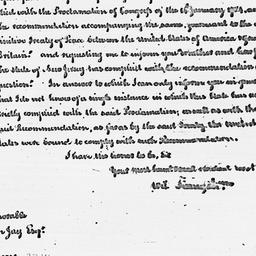 with the Proclamation of Congress of the 16 January 178
the recommendation accompanying the same, pursuant to the
Treaty of Peace between the United States of America &
Britain? and requesting me to inform you whether and how
the State of New Jersey has complied with the recommendation
question? In answer to which I can only inform you in
that I do not know of a single instance in which this State has
strictly complied with the said Proclamation; as well as with the
said Recommendation, as far as by the said Treaty, the
States were bound to comply with such Recommendations.
I have the honor to be, Sir
Your most humble
Wil Livingston
Jay Esqr.